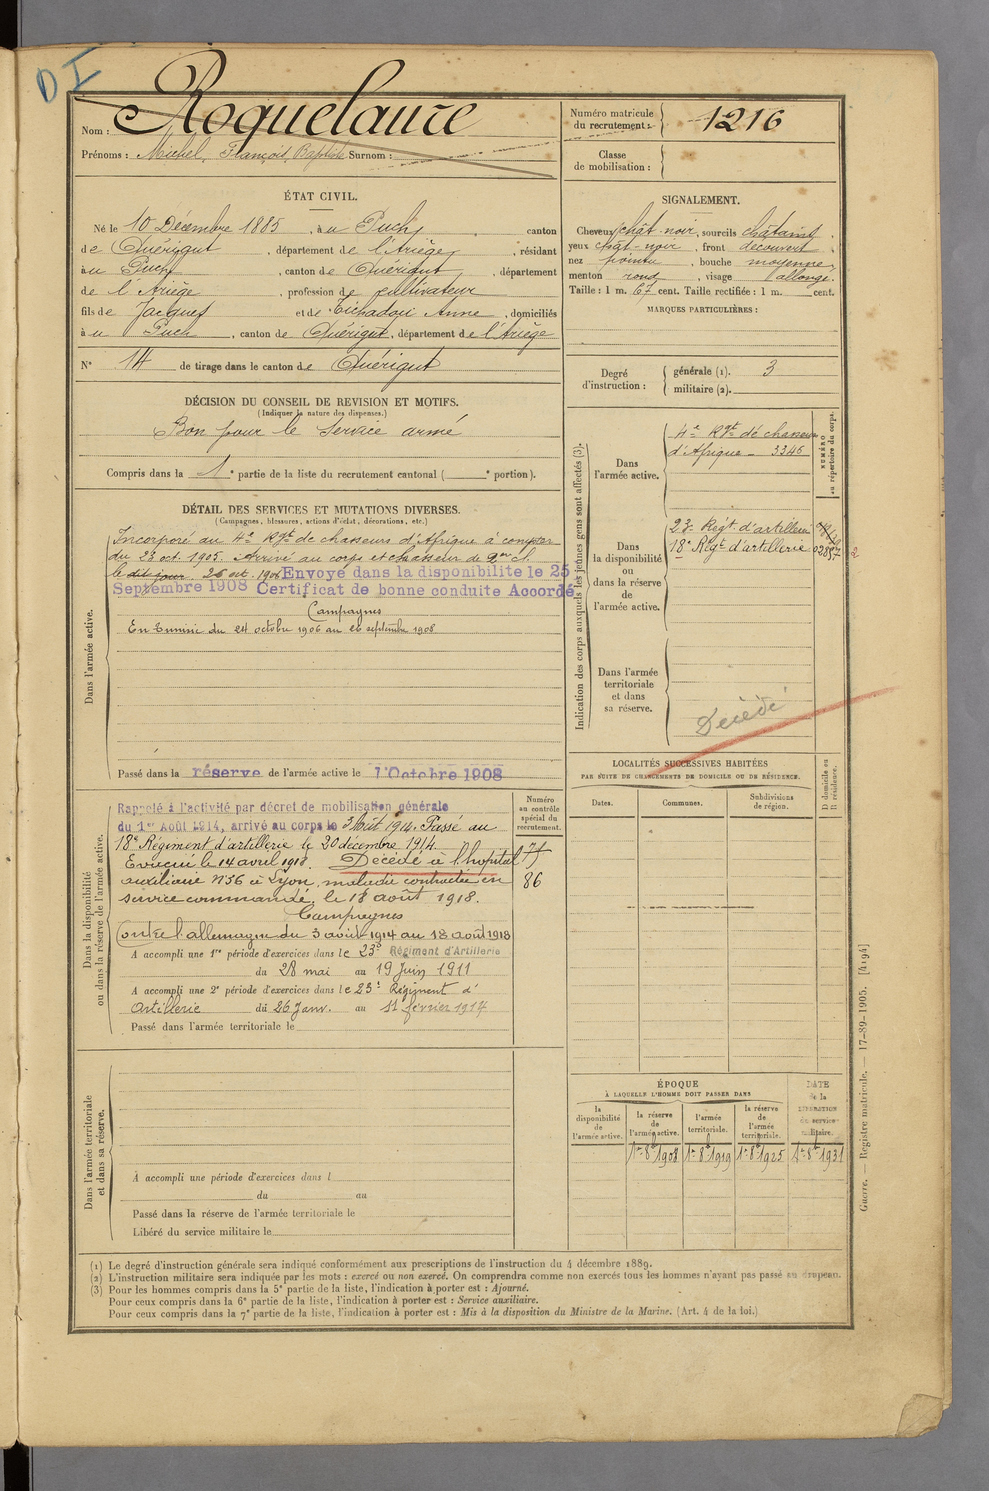 D I
Nom : Roquelaure
Prénoms : Michel, François, Baptiste Surnom :
Numéro matricule du recrutement : 1216
Classe de mobilisation :
ÉTAT CIVIL.
Né le 10 Décembre 1885, à Puch, canton
de Quérigut, département de l'Ariège, résidant
à Puch, canton de Quérigut, département
de l'Ariège, profession de cultivateur
fils de Jacques et de Anne, domiciliés
à Puch, canton de Quérigut, département de l'Ariège
N° 14 de tirage dans le canton de Quérigut
DÉCISION DU CONSEIL DE REVISION ET MOTIFS.
(Indiquer la nature des dispenses.)
Bon pour le service armé
Compris dans la 1e partie de la liste du recrutement cantonal ( e portion).
DÉTAIL DES SERVICES ET MUTATIONS DIVERSES.
(Campagnes, blessures, actions d'éclat, décorations, etc.)
Dans l'armée active.
Incorporé au 4e Rgt de chasseurs d'Afrique à compter
du 23 oct. 1905. Arrivé au corps et chasseur de 2me cl.
le dit jour. 26 oct. 1906 Envoyé dans la disponibilité le 25
Septembre 1908 Certificat de bonne conduite Accordé
Campagnes
En Tunisie du 24 octobre 1906 au 26 septembre 1908
Passé dans la réserve de l'armée active le 1 Octobre 1908
Dans la disponibilité
ou dans la réserve de l'armée active.
Numéro
au contrôle
spécial du
recrutement.
Rappelé à l'activité par décret de mobilisation générale
du 1er Août 1914, arrivé au corps le 3 Août 1914. Passé au
18e Régiment d'artillerie le 20 décembre 1914.
Evacué le 14 avril 1918. Décédé à l'hôpital
auxiliaire N°36 à Lyon, maladie contractée en
service commandé, le 18 août 1918.
86
Campagnes
Contre l'allemagne du 3 août 1914 au 18 août 1918
A accompli une 1re période d'exercices dans le 23e Régiment d'Artillerie
du 28 mai au 19 Juin 1911
A accompli une 2e période d'exercices dans le 23e Régiment d'
Artillerie du 26 Janv. au 11 février 1914
Passé dans l'armée territoriale le
Dans l'armée territoriale
et dans sa réserve.
A accompli une période d'exercices dans l
du au
Passé dans la réserve de l'armée territoriale le
Libéré du service militaire le
SIGNALEMENT.
Cheveux chât-noir, sourcils châtains,
yeux chât-noir, front découvert,
nez pointu, bouche moyenne,
menton rond, visage allongé.
Taille : 1 m. 67 cent. Taille rectifiée : 1 m. cent.
MARQUES PARTICULIÈRES :
Degré d'instruction : générale (1). 3
militaire (2).
Indication des corps auxquels les jeunes gens sont affectés (3).
NUMÉRO
au répertoire du corps.
Dans
l'armée active.
4e Rgt de chasseurs
d'Afrique - 3346
Dans
la disponibilité
ou
dans la réserve
de
l'armée active.
23e Régt d'artillerie
18e Régt d'artillerie
Dans l'armée
territoriale
et dans
sa réserve.
Décédé
LOCALITÉS SUCCESSIVES HABITÉES
PAR SUITE DE CHANGEMENTS DE DOMICILE OU DE RÉSIDENCE.
Dates. Communes. Subdivisions de région. D domicile ou R résidence.
ÉPOQUE
À LAQUELLE L'HOMME DOIT PASSER DANS
DATE
de la
LIBÉRATION
du service
militaire.
la disponibilité de l'armée active. la réserve de l'armée active. l'armée territoriale. la réserve de l'armée territoriale.
1er 8bre 1908 1er 8bre 1919 1er 8bre 1925 1er 8bre 1931
Guerre. — Registre matricule. — 17-89-1905. [4194]
(1) Le degré d'instruction générale sera indiqué conformément aux prescriptions de l'instruction du 4 décembre 1889.
(2) L'instruction militaire sera indiquée par les mots : exercé ou non exercé. On comprendra comme non exercés tous les hommes n'ayant pas passé au drapeau.
(3) Pour les hommes compris dans la 5e partie de la liste, l'indication à porter est : Ajourné.
Pour ceux compris dans la 6e partie de la liste, l'indication à porter est : Service auxiliaire.
Pour ceux compris dans la 7e partie de la liste, l'indication à porter est : Mis à la disposition du Ministre de la Marine. (Art. 4 de la loi.)